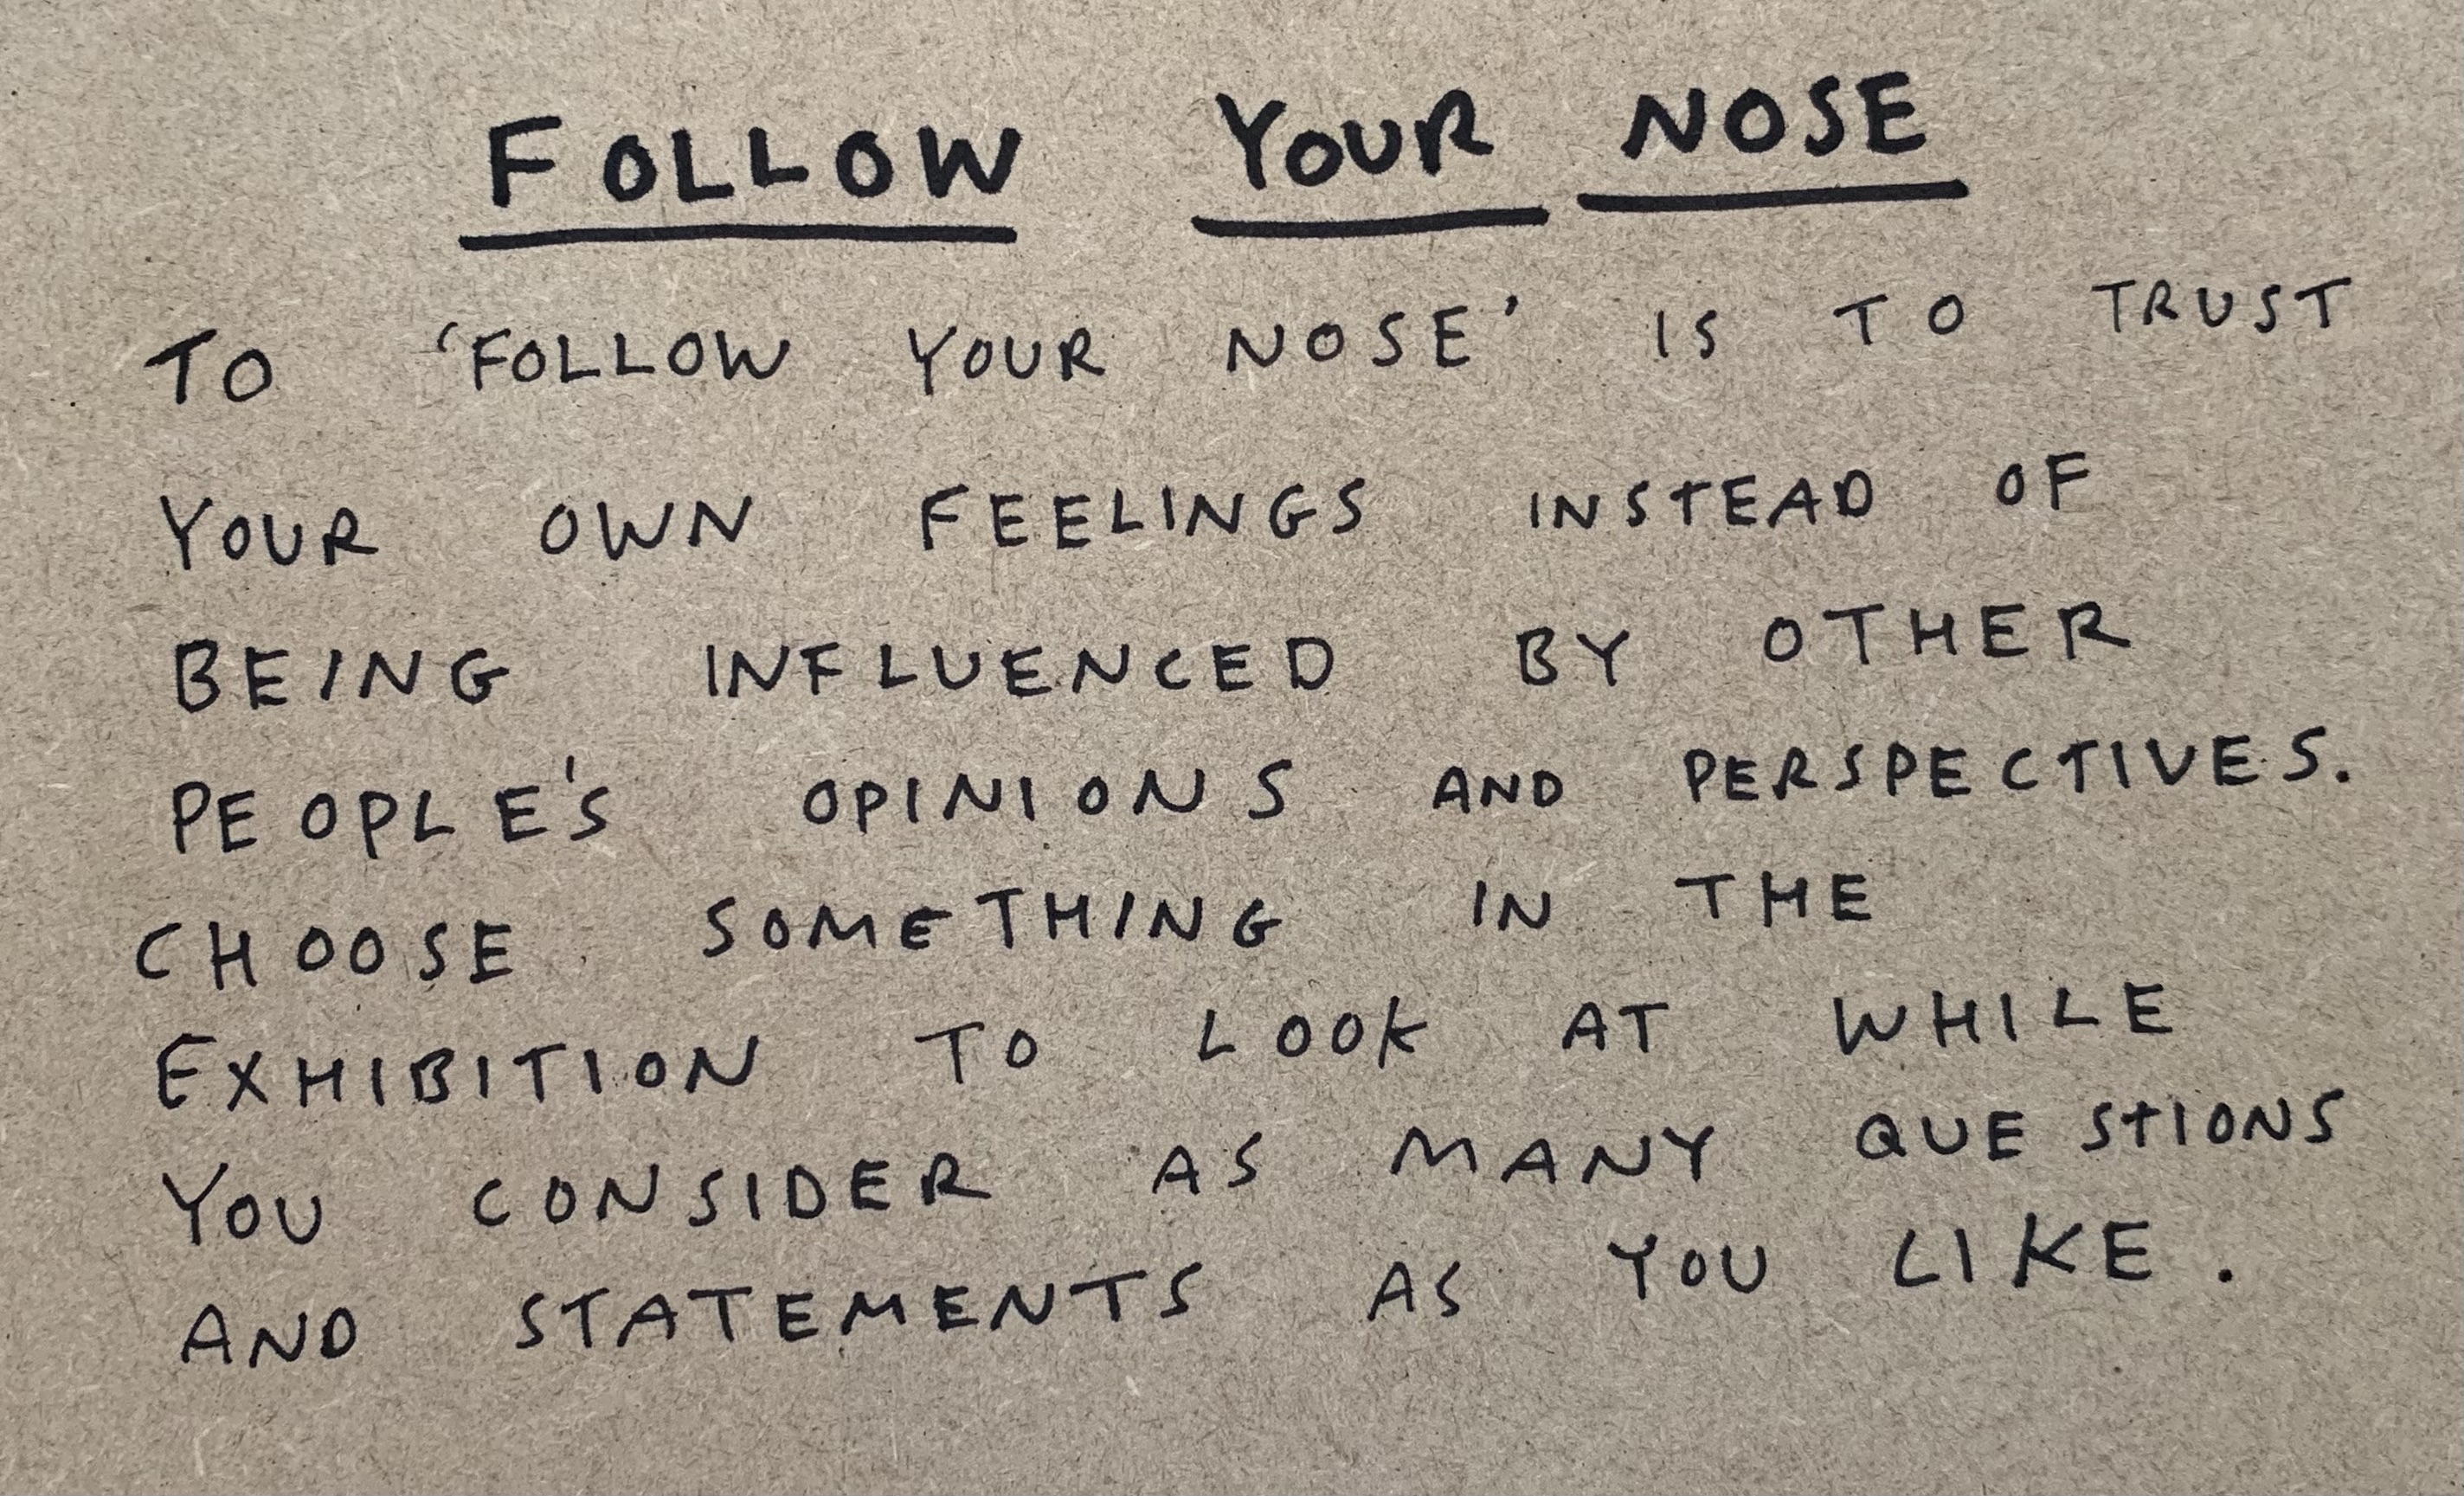 FOLLOW YOUR NOSE
TO 'FOLLOW YOUR NOSE' IS TO TRUST
YOUR OWN FEELINGS INSTEAD OF
BEING INFLUENCED BY OTHER
PEOPLE'S OPINIONS AND PERSPECTIVES.
CHOOSE SOMETHING IN THE
EXHIBITION TO LOOK AT WHILE
YOU CONSIDER AS MANY QUESTIONS
AND STATEMENTS AS YOU LIKE.